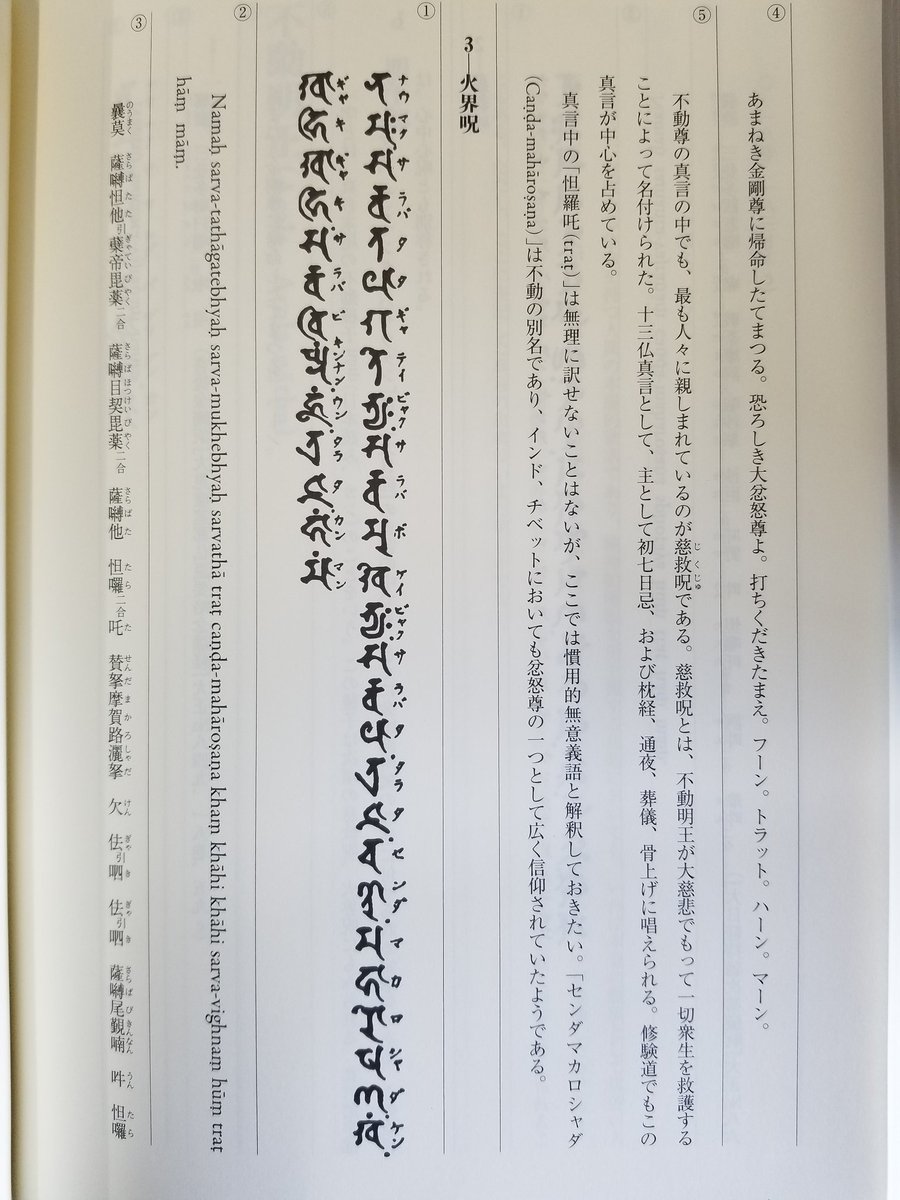 ④
あまねき金剛尊に帰命したてまつる。恐ろしき大忿怒尊よ。打ちくだきたまえ。フーン。トラット。ハーン。マーン。
⑤
不動尊の真言の中でも、最も人々に親しまれているのが慈救呪である。慈救呪とは、不動明王が大慈悲でもって一切衆生を救護する
じくじゅ
ことによって名付けられた。十三仏真言として、主として初七日忌、および枕経、通夜、葬儀、骨上げに唱えられる。修験道でもこの
真言が中心を占めている。
真言中の「怛羅吒(traṭ)」は無理に訳せないことはないが、ここでは慣用的無意義語と解釈しておきたい。「センダマカロシャダ
(Caṇḍa-mahāroṣaṇa)」は不動の別名であり、インド、チベットにおいても忿怒尊の一つとして広く信仰されていたようである。
3—火界呪
①
ナウ マク サ ラバ タ タ ギャ テイ ビャク サ ラバ ボ ケイ ビャク サ ラバ タ タラ タ セン ダ マ カ ロ シャ ダ ケン
ギャ キ ギャ キ サ ラバ ビ キンナン ウン タラ タ カン マン
②
Namaḥ sarva-tathāgatebhyaḥ sarva-mukhebhyaḥ sarvathā traṭ caṇḍa-mahāroṣaṇa khaṃ khāhi khāhi sarva-vighnaṃ hūṃ traṭ
hāṃ māṃ.
③
のうまく さらばたたぎゃていびやく さらばぼつけいびやく さらばた たらた せんだまかろしゃだ けん ぎゃき ぎゃき さらばびきんなん うん たら
曩莫 薩嚩怛他引蘖帝毘薬二合 薩嚩目契毘薬二合 薩嚩他 怛囉二合吒 賛拏摩賀路灑拏 欠 佉引呬 佉引呬 薩嚩尾覲喃 吽 怛囉